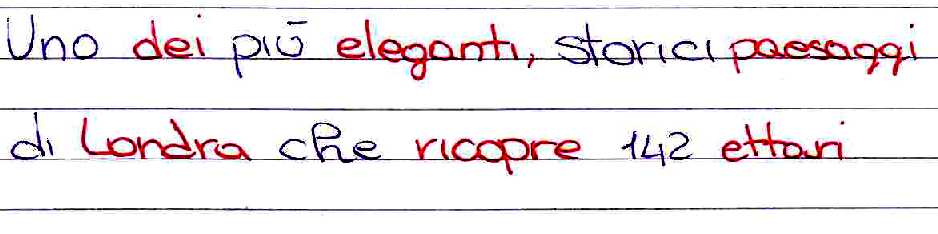 Uno dei più eleganti, storici paesaggi
di Londra che ricopre 142 ettari